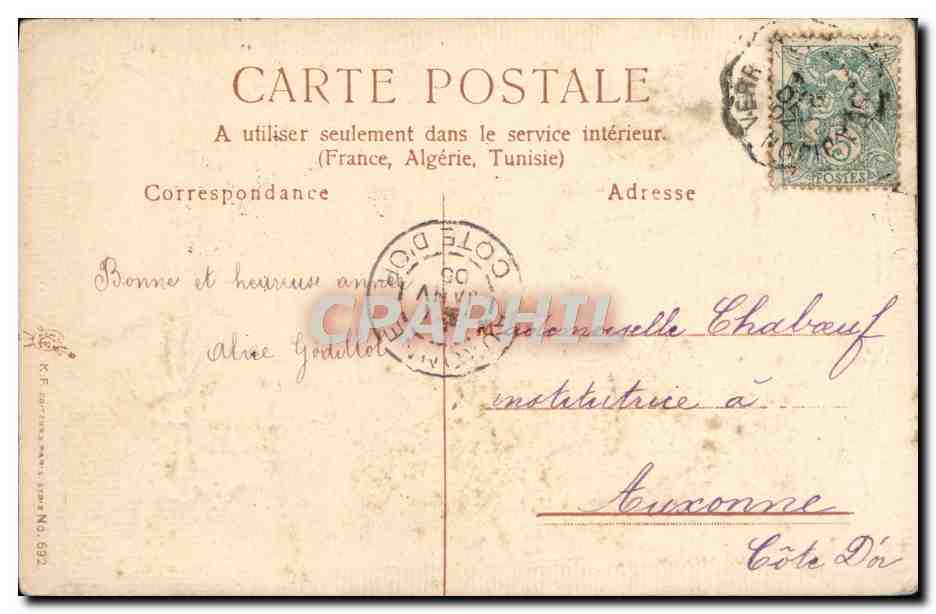 CARTE POSTALE
A utiliser seulement dans le service intérieur.
(France, Algérie, Tunisie)
Correspondance
Adresse
Bonne et heureuse année
Alice Godillot
Mademoiselle Chabœuf
institutrice à
Auxonne
Côte D'or
COTE D'OR
JANV
05
VERR
DIJON
5
POSTES
CRAPHIL
K. F. EDITEURS, PARIS SERIE No. 692